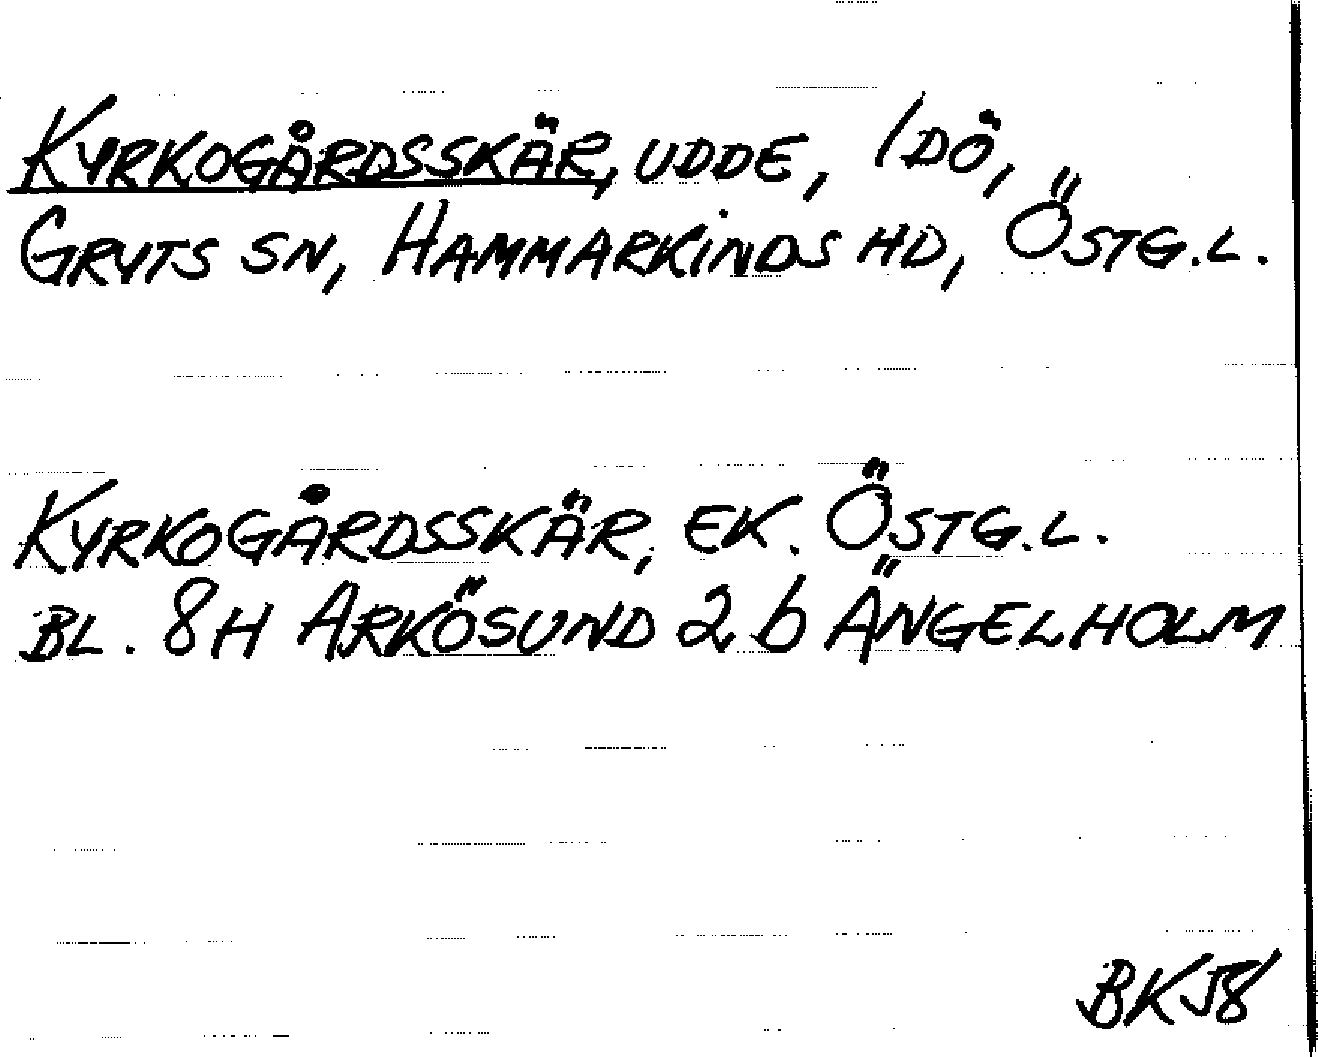 KYRKOGÅRDSSKÄR, UDDE, IDÖ,
GRYTS SN, HAMMARKINDS HD, ÖSTG.L.
KYRKOGÅRDSSKÄR, EK. ÖSTG.L.
BL. 8H ARKÖSUND 2 b ÄNGELHOLM
BKJ8